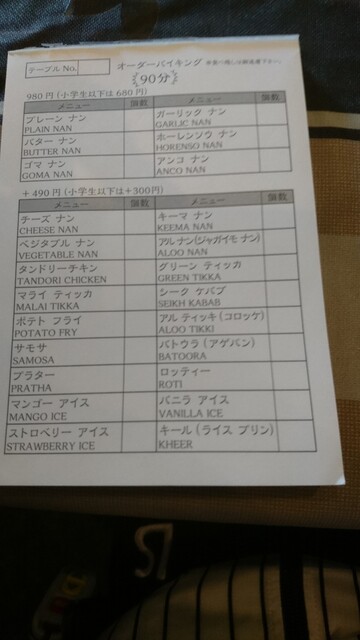 テーブル No.
オーダーバイキング
90分
980 円 (小学生以下は 680 円)
メニュー 個数 メニュー 個数
プレーン ナン ガーリック ナン
PLAIN NAN GARLIC NAN
バター ナン ホーレンソウ ナン
BUTTER NAN HORENSO NAN
ゴマ ナン アンコ ナン
GOMA NAN ANCO NAN
+ 490 円 (小学生以下は+300円)
メニュー 個数 メニュー 個数
チーズ ナン キーマ ナン
CHEESE NAN KEEMA NAN
ベジタブル ナン アル ナン(ジャガイモ ナン)
VEGETABLE NAN ALOO NAN
タンドリーチキン グリーン ティッカ
TANDORI CHICKEN GREEN TIKKA
マライ ティッカ シーク ケバブ
MALAI TIKKA SEIKH KABAB
ポテト フライ アル ティッキ (コロッケ)
POTATO FRY ALOO TIKKI
サモサ バトウラ (アゲパン)
SAMOSA BATOORA
プラター ロッティー
PRATHA ROTI
マンゴー アイス バニラ アイス
MANGO ICE VANILLA ICE
ストロベリー アイス キール (ライス プリン)
STRAWBERRY ICE KHEER